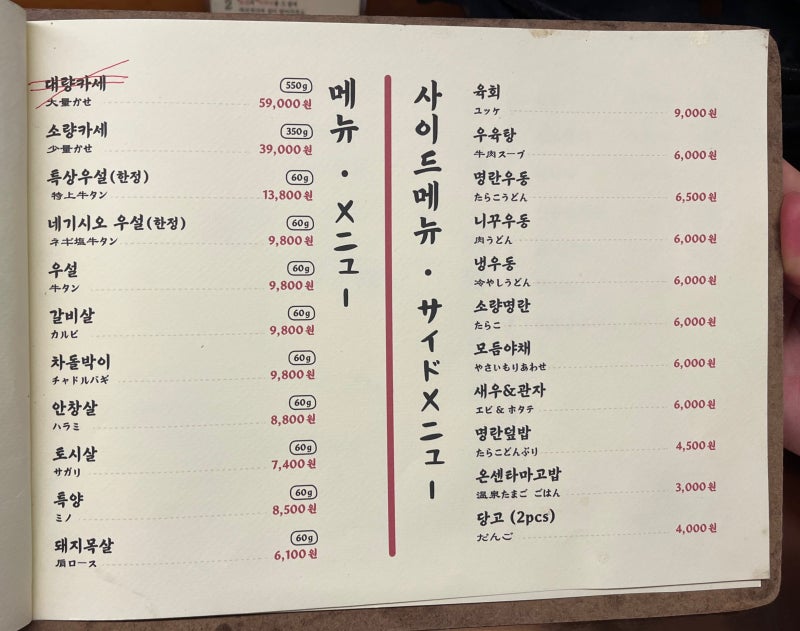 대량카세 550g
大量かせ 59,000원
소량카세 350g
少量かせ 39,000원
특상우설(한정) 60g
特上牛タン 13,800원
네기시오 우설(한정) 60g
ネギ塩牛タン 9,800원
우설 60g
牛タン 9,800원
갈비살 60g
カルビ 9,800원
차돌박이 60g
チャドルバギ 9,800원
안창살 60g
ハラミ 8,800원
토시살 60g
サガリ 7,400원
특양 60g
ミノ 8,500원
돼지목살 60g
肩ロース 6,100원
메뉴・メニュー
사이드메뉴・サイドメニュー
육회
ユッケ 9,000원
우육탕
牛肉スープ 6,000원
명란우동
たらこうどん 6,500원
니꾸우동
肉うどん 6,000원
냉우동
冷やしうどん 6,000원
소량명란
たらこ 6,000원
모듬야채
やさいもりあわせ 6,000원
새우&관자
エビ & ホタテ 6,000원
명란덮밥
たらこどんぶり 4,500원
온센타마고밥
温泉たまご ごはん 3,000원
당고 (2pcs)
だんご 4,000원